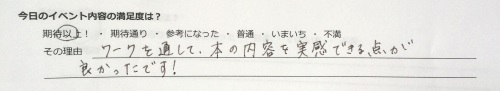 今日のイベント内容の満足度は？
期待以上！ ・ 期待通り ・ 参考になった ・ 普通 ・ いまいち ・ 不満
その理由 ワークを通して、本の内容を実感できる点が
良かったです！